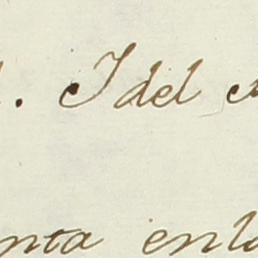 . Idel
nta enla